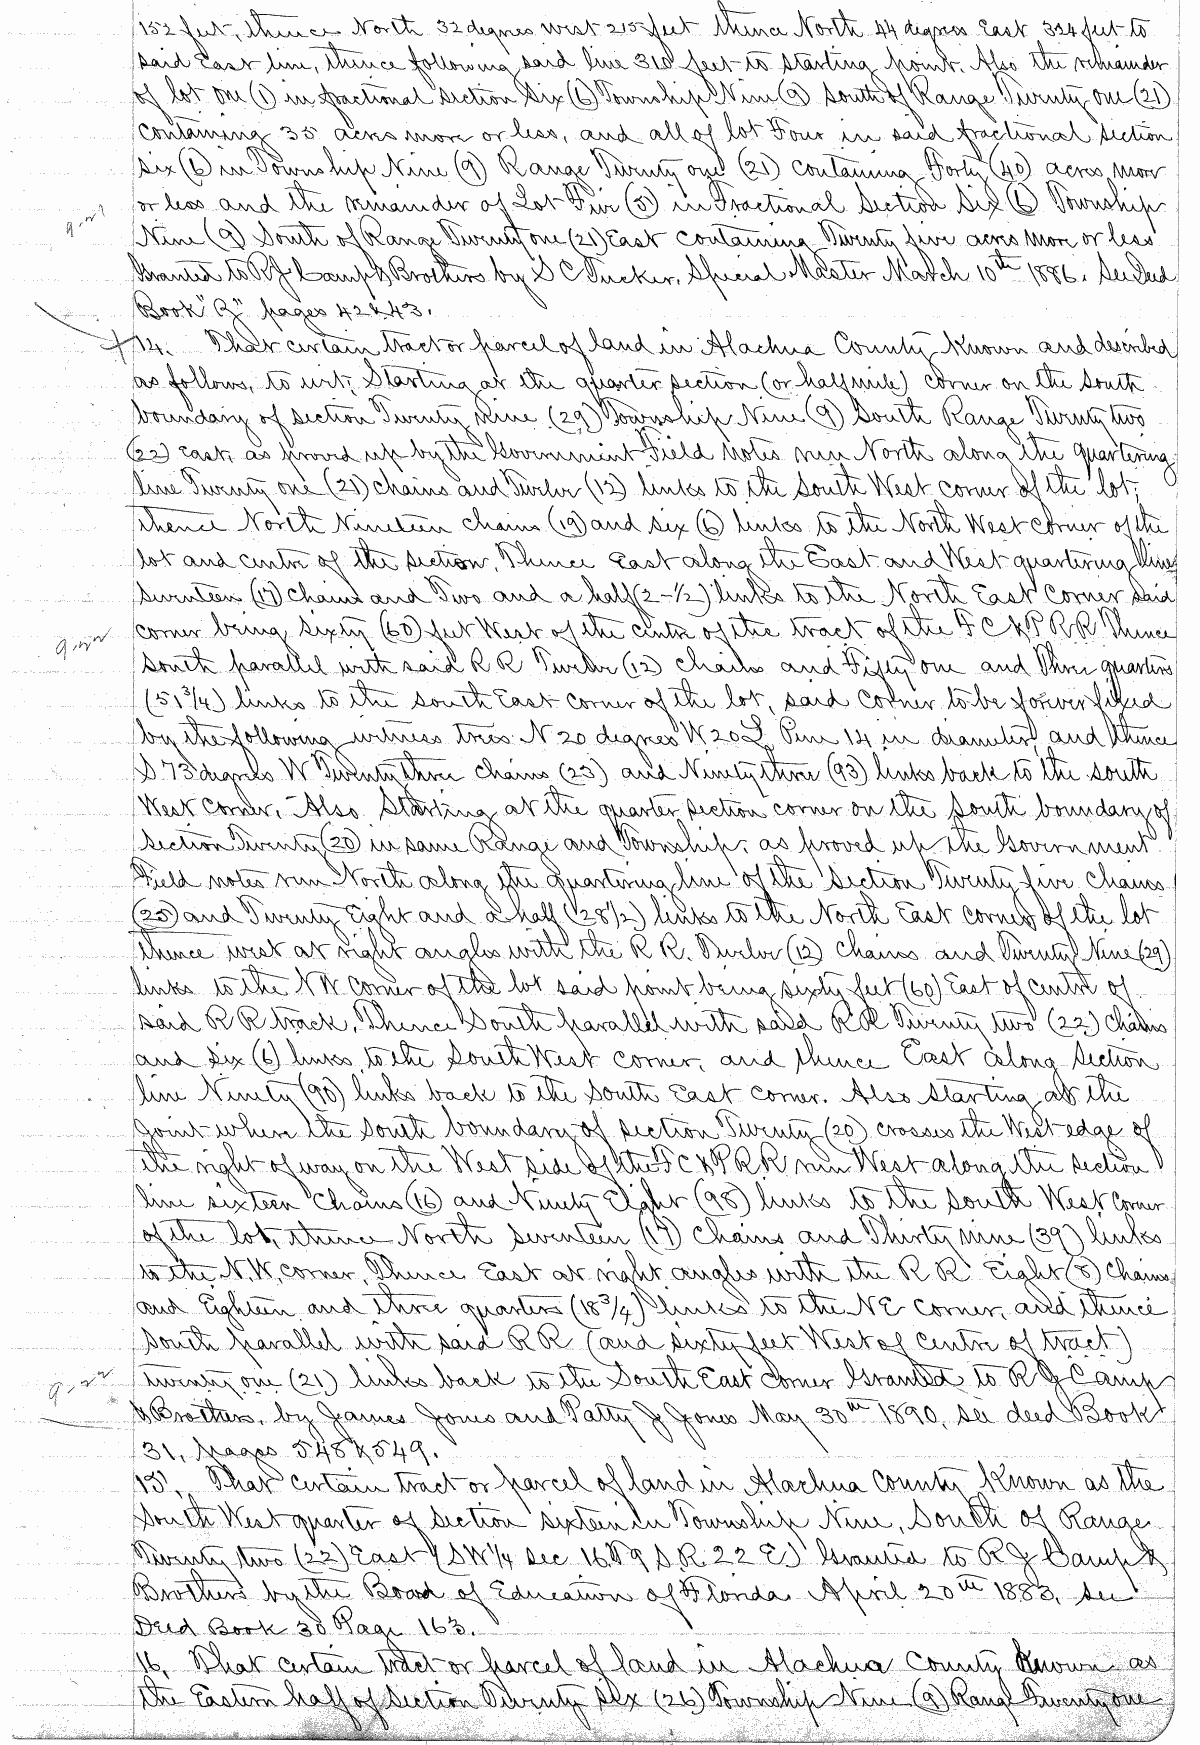 152 feet, thence North 32 degrees west 215 feet thence North 44 degrees East 324 feet to
said East line, thence following said line 310 feet to starting point. Also the remainder
of lot one (1) in fractional section Six (6) Township Nine (9) South of Range Twenty one (21)
containing 35 acres more or less, and all of lot Four in said fractional section
Six (6) in Township Nine (9) Range Twenty one (21) containing Forty (40) acres more
or less and the remainder of Lot Five (5) in Fractional Section Six (6) Township
9-21
Nine (9) South of Range Twenty one (21) East containing Twenty five acres more or less
Granted to R J Camp & Brothers by S C Tucker, Special Master March 10th 1886. See Deed
Book "Z" pages 42 & 43.
14. That certain tract or parcel of land in Alachua County Known and described
as follows, to wit; Starting at the quarter section (or half mile) corner on the South
boundary of section Twenty Nine (29) Township Nine (9) South Range Twenty two
(22) East, as proved up by the Government Field notes run North along the quartering
line Twenty one (21) chains and Twelve (12) links to the South West corner of the lot;
thence North Nineteen chains (19) and six (6) links to the North West corner of the
lot and centre of the section, Thence East along the East and West quartering line
Seventeen (17) chains and Two and a half (2-1/2) links to the North East Corner said
9-22
corner being sixty (60) feet West of the centre of the tract of the F C & P R R Thence
South parallel with said R R Twelve (12) chains and Fifty one and Three quarters
(51 3/4) links to the South East corner of the lot, said corner to be forever fixed
by the following witness trees N 20 degrees W 20 L Pine 14 in diameter, and thence
S 73 degrees W Twenty three chains (23) and Ninety three (93) links back to the South
West Corner, Also Starting at the quarter section corner on the South boundary of
section Twenty (20) in same Range and Township, as proved up the Government
Field notes run North along the quartering line of the Section Twenty five Chains
(25) and Twenty Eight and a half (28 1/2) links to the North East corner of the lot
thence west at right angles with the R R. Twelve (12) chains and Twenty Nine (29)
links to the N W corner of the lot said point being sixty feet (60) East of centre of
said R R track, Thence South parallel with said R R Twenty two (22) Chains
and Six (6) links to the South West corner, and thence East along Section
line Ninety (90) links back to the South East corner. Also Starting at the
point where the South boundary of section Twenty (20) crosses the West edge of
the right of way on the West side of the F C & P R R run West along the section
line sixteen Chains (16) and Ninety Eight (98) links to the South West corner
of the lot, thence North Seventeen (17) Chains and Thirty nine (39) links
to the N.W. corner, Thence East at right angles with the R R Eight (8) Chains
and Eighteen and three quarters (18 3/4) links to the N E corner, and thence
South parallel with said R R (and sixty feet West of centre of tract)
9-22
twenty one (21) links back to the South East Corner Granted to R J Camp
& Brothers, by James Jones and Patty J Jones May 30th 1890, see deed Book
31, Pages 548 & 549.
15. That certain tract or parcel of land in Alachua County Known as the
South West quarter of section sixteen in Township Nine, South of Range
Twenty two (22) East (SW 1/4 Sec 16 T 9 S. R. 22 E.) Granted to R J Camp &
Brothers by the Board of Education of Florida April 20th 1883, see
Deed Book 30 Page 163.
16. That certain tract or parcel of land in Alachua County Known as
the Eastern half of Section Twenty Six (26) Township Nine (9) Range Twenty one